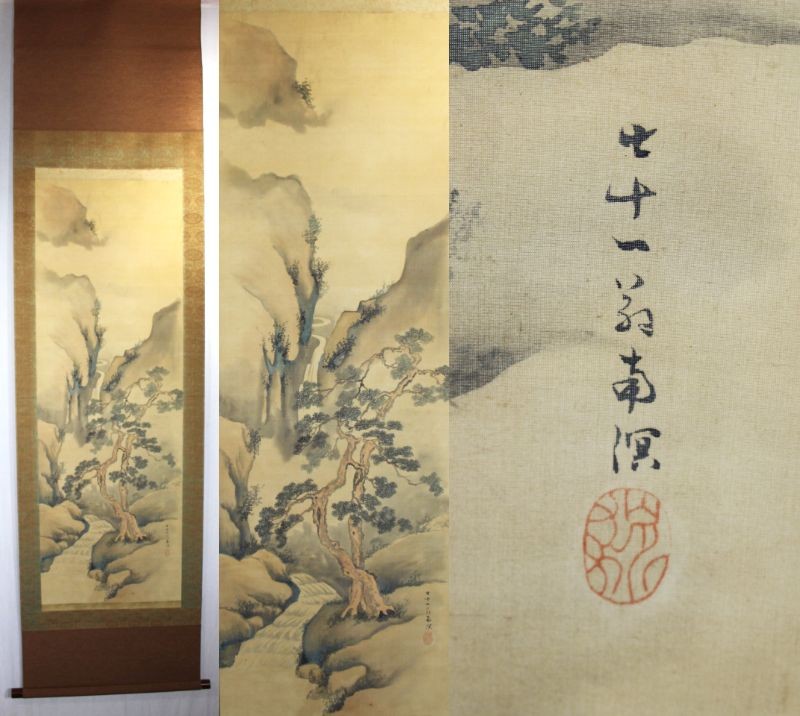 七十一翁南溟